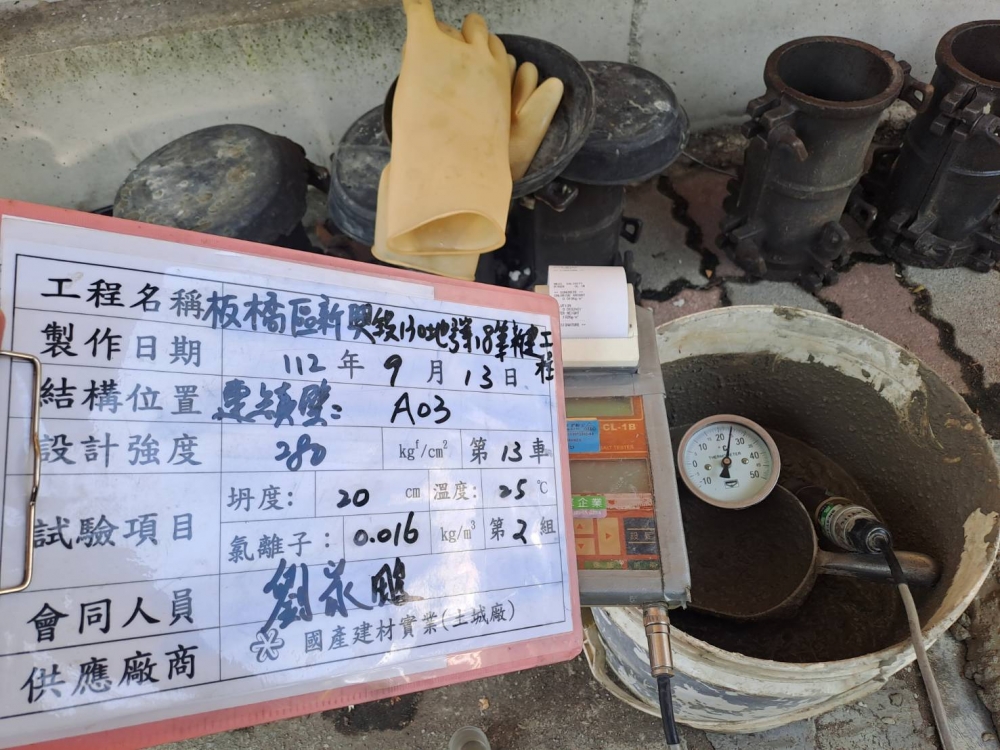 工程名稱 板橋區新興段130地號等18筆新建工程
製作日期 112 年 9 月 13 日
結構位置 連續壁: A03
設計強度 280 kgf/cm² 第 13 車
試驗項目 坍度: 20 cm 溫度: 25 ℃
氯離子: 0.016 kg/m³ 第 2 組
會同人員
供應廠商 國產建材實業(土城廠)
CL-1B
企業
-10 0 10 20 30 40 50
℃